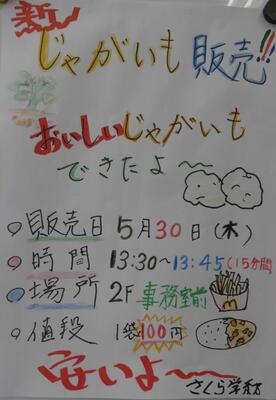 新
じゃがいも 販売!!
おいしいじゃがいも
できたよ〜
販売日 5月30日(木)
時間 13:30〜13:45(15分間)
場所 2F 事務室前
値段 1袋100円
安いよ〜
さくら学級